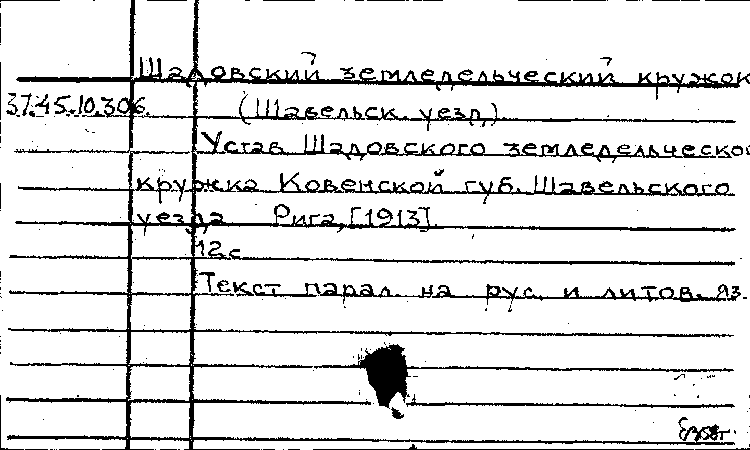 Шадовский земледельческий кружок
37.45.10.306. (Шавельск. уезд)
Устав Шадовского земледельческо
кружка Ковенской губ. Шавельского
уезда Рига, [1913].
12 с
Текст парал. на рус. и литов. яз.